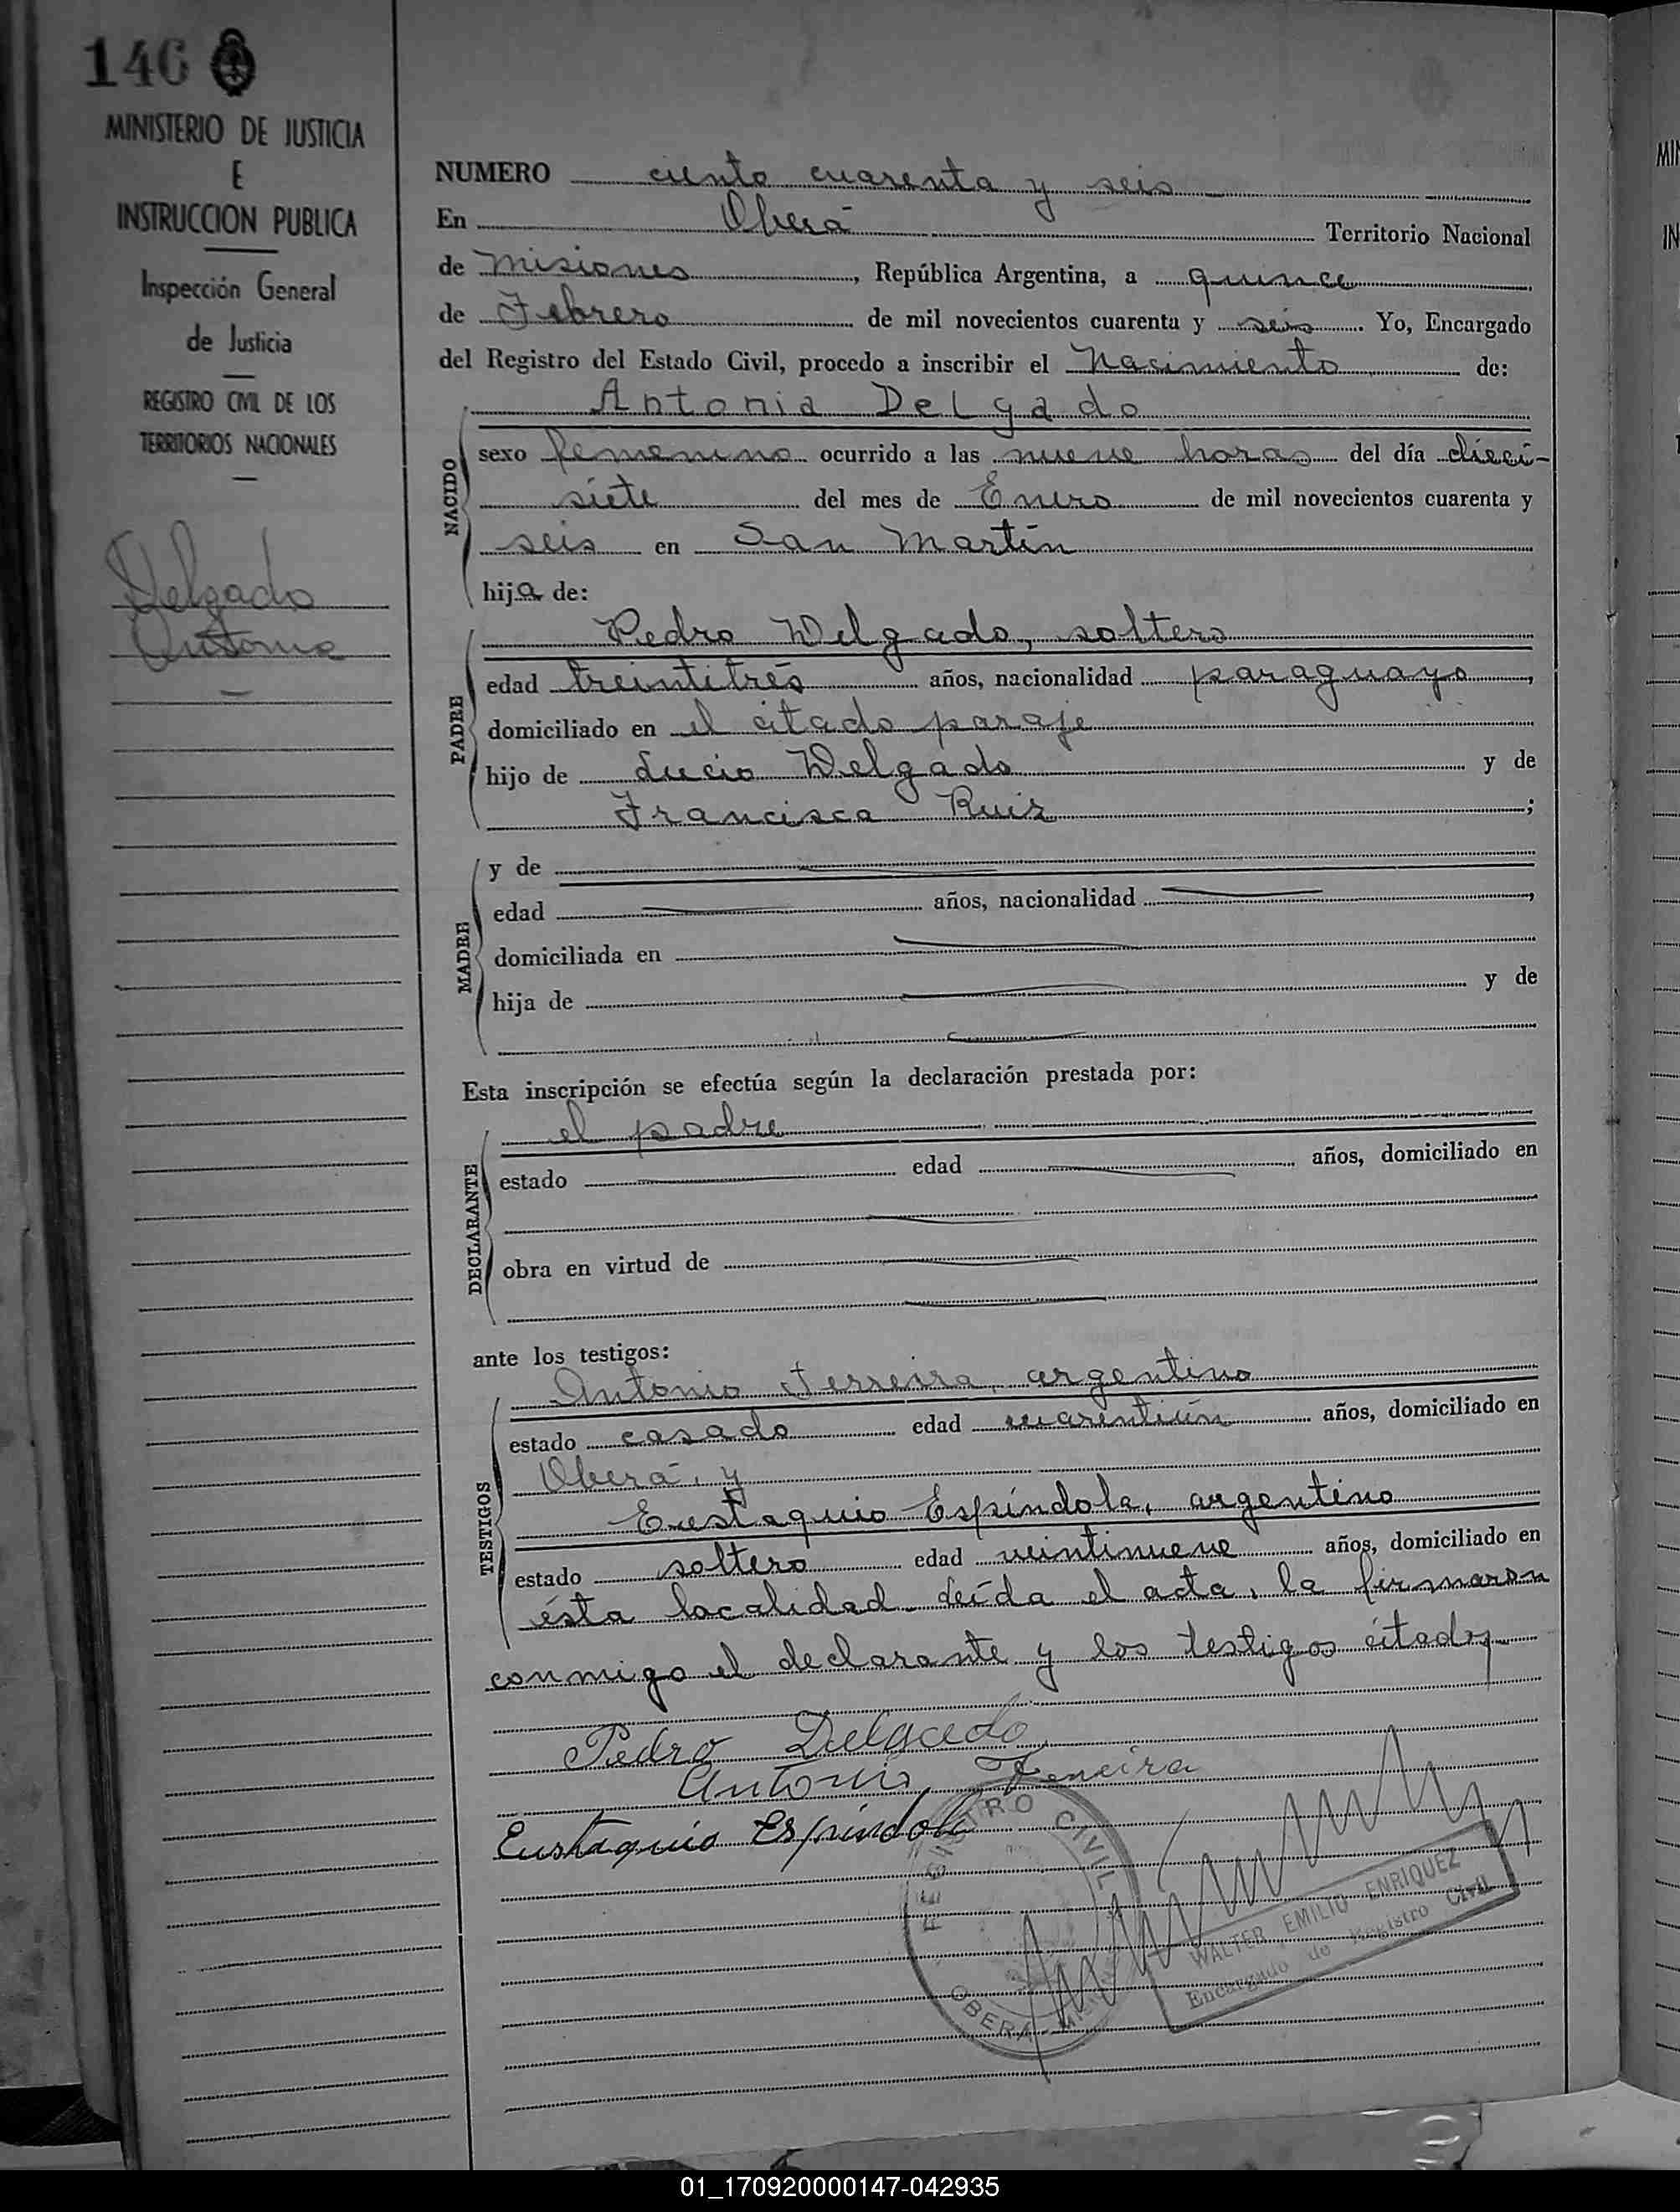 146
MINISTERIO DE JUSTICIA
E
INSTRUCCION PUBLICA
Inspección General
de Justicia
REGISTRO CIVIL DE LOS
TERRITORIOS NACIONALES
Delgado
Antonia
NUMERO ciento cuarenta y seis
En Oberá Territorio Nacional
de Misiones, República Argentina, a quince
de Febrero de mil novecientos cuarenta y seis. Yo, Encargado
del Registro del Estado Civil, procedo a inscribir el Nacimiento de:
Antonia Delgado
NACIDO
sexo femenino ocurrido a las nueve horas del día dieci-
siete del mes de Enero de mil novecientos cuarenta y
seis en San Martín
hija de:
PADRE
Pedro Delgado, soltero
edad treintitrés años, nacionalidad paraguayo,
domiciliado en el citado paraje
hijo de Lucio Delgado y de
Francisca Ruiz;
MADRE
y de
edad años, nacionalidad,
domiciliada en
hija de y de
Esta inscripción se efectúa según la declaración prestada por:
DECLARANTE
el padre
estado edad años, domiciliado en
obra en virtud de
ante los testigos:
TESTIGOS
Antonio Ferreira, argentino
estado casado edad cuarentiún años, domiciliado en
Oberá, y
Eustaquio Espíndola, argentino
estado soltero edad veintinueve años, domiciliado en
ésta localidad. Leída el acta, la firmaron
conmigo el declarante y los testigos citados
Pedro Delgado
Antonio Ferreira
Eustaquio Espíndola
REGISTRO CIVIL
OBERA
WALTER EMILIO ENRIQUEZ
Encargado de Registro Civil
MI
IN
01_170920000147-042935